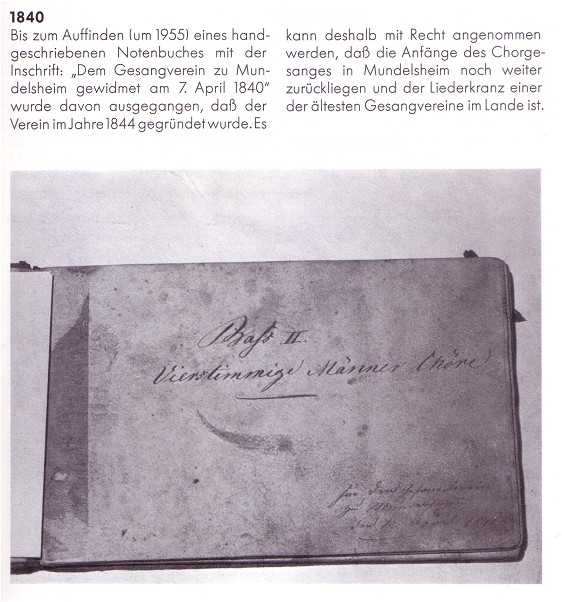 1840
Bis zum Auffinden (um 1955) eines hand-
geschriebenen Notenbuches mit der
Inschrift: „Dem Gesangverein zu Mun-
delsheim gewidmet am 7. April 1840“
wurde davon ausgegangen, daß der
Verein im Jahre 1844 gegründet wurde. Es
kann deshalb mit Recht angenommen
werden, daß die Anfänge des Chorge-
sanges in Mundelsheim noch weiter
zurückliegen und der Liederkranz einer
der ältesten Gesangvereine im Lande ist.
Baſs II.
Vierstimmige Männer Chöre
für den Gesangverein
zu